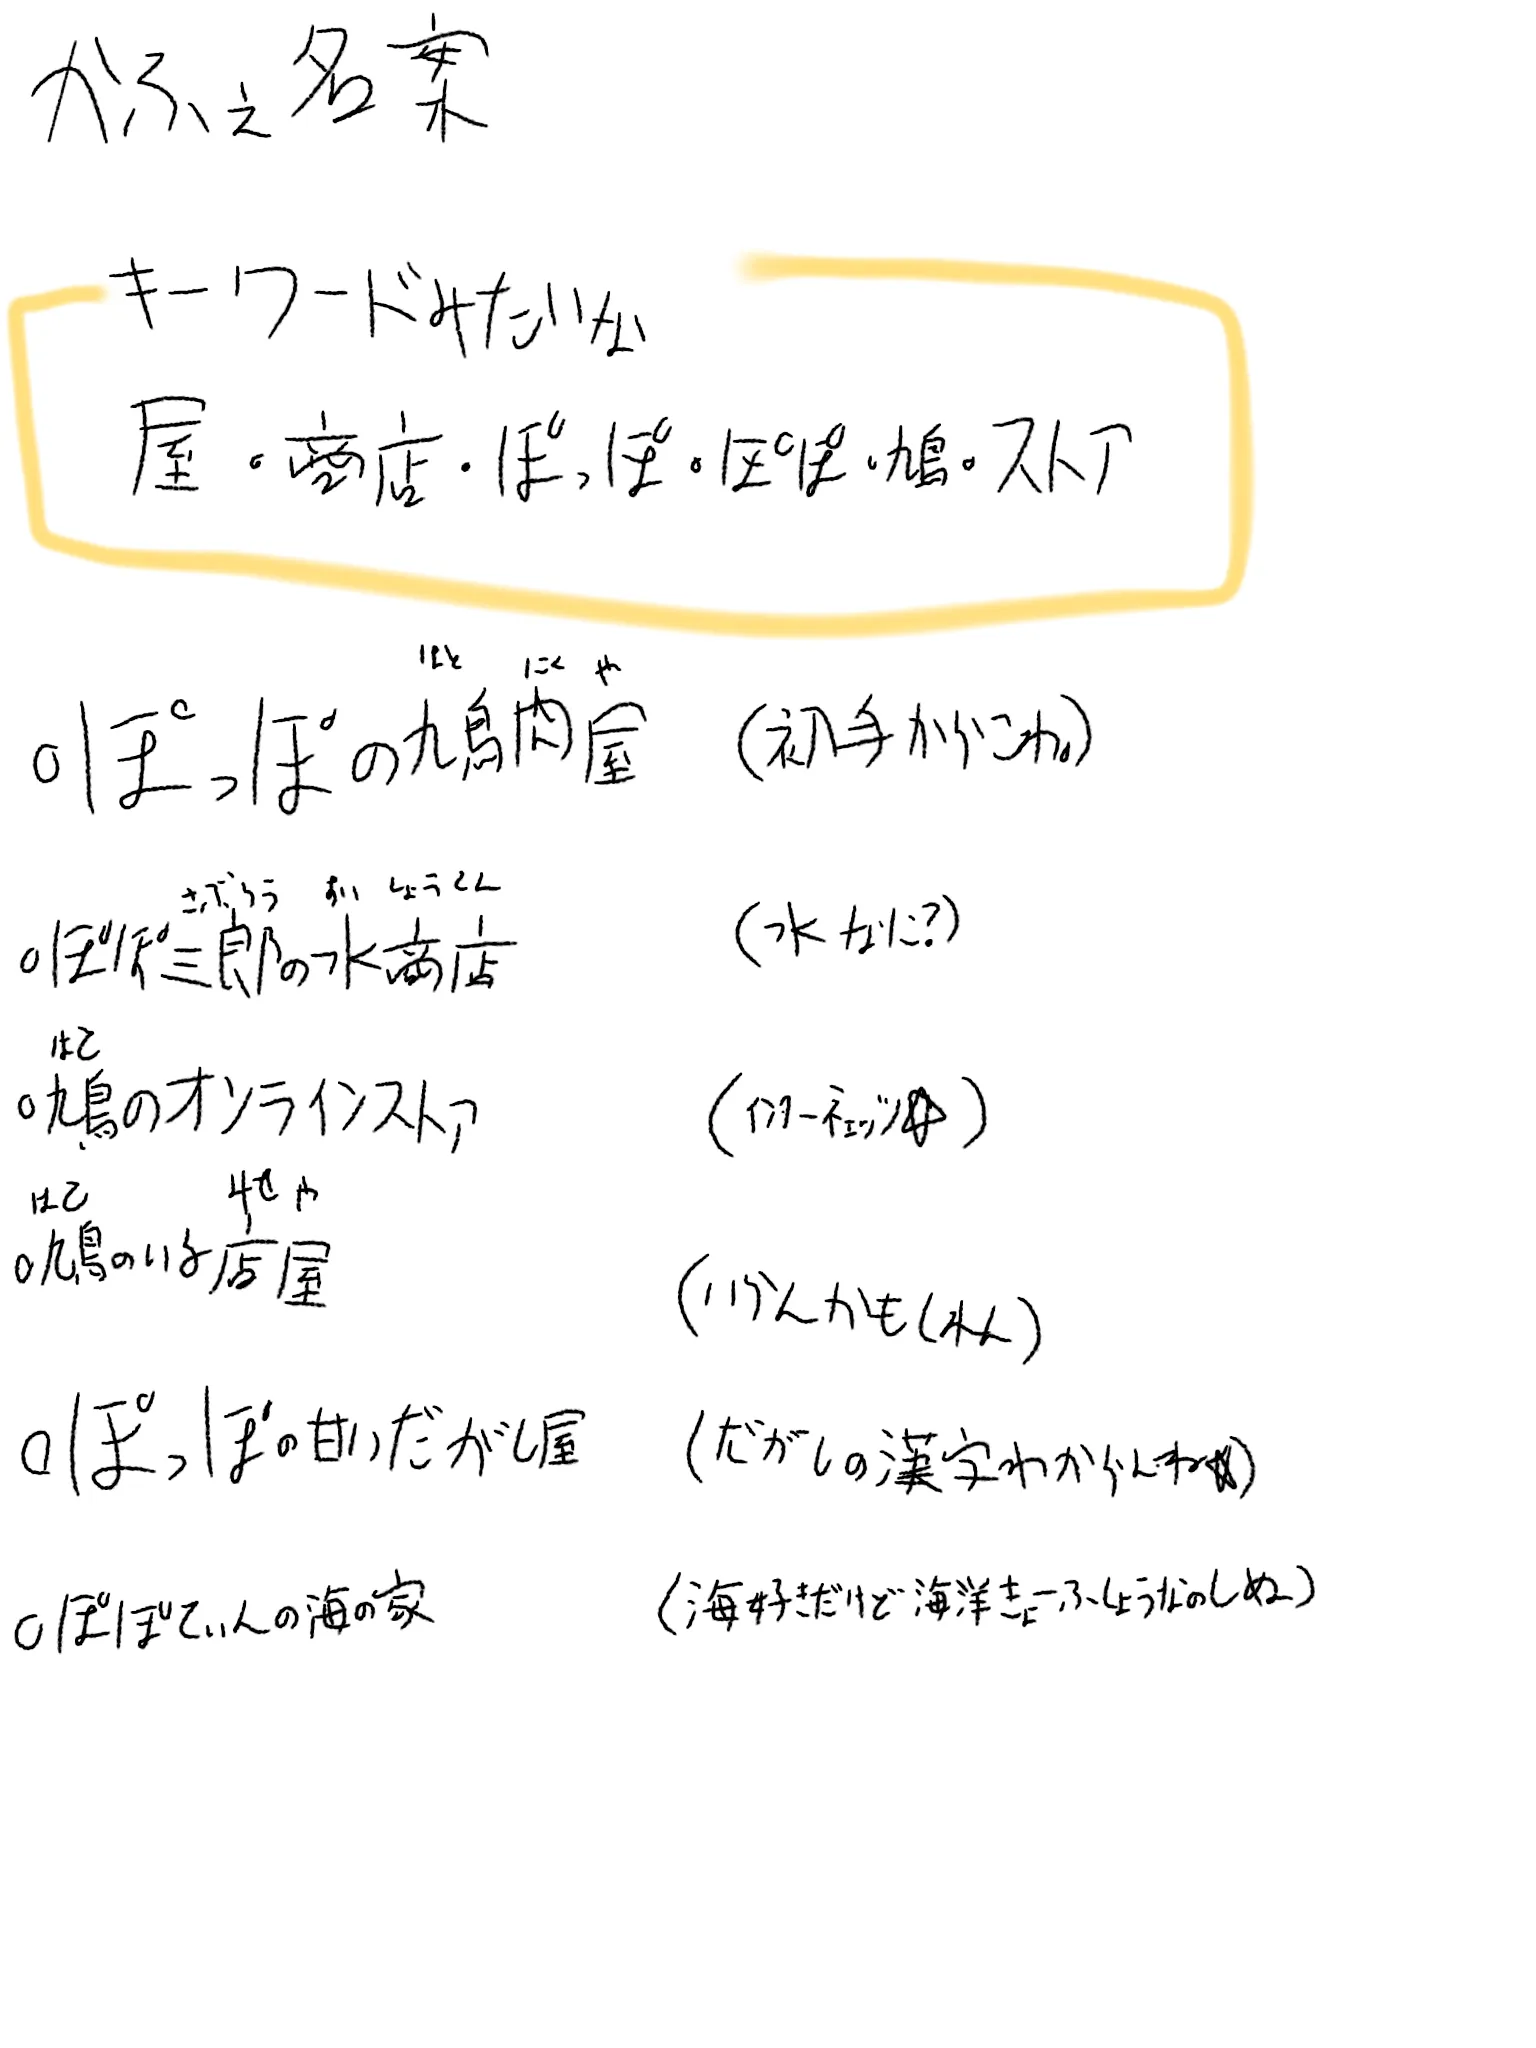 かふぇ名案
キーワードみたいな
屋・商店・ぽっぽ・ぽぽ・鳩・ストア
はと にく や
○ぽっぽの鳩肉屋 (初手からこわ。)
さぶろう すい しょうてん
○ぽぽ三郎の水商店 (水なに?)
はと
○鳩のオンラインストア (インターネェッツ☆)
はと みせ や
○鳩のいる店屋 (いらんかもしれん)
○ぽっぽの甘いだがし屋 (だがしの漢字わからんわ☆)
○ぽぽてぃんの海の家 (海好きだけど海洋きょーふしょうなのしぬー)